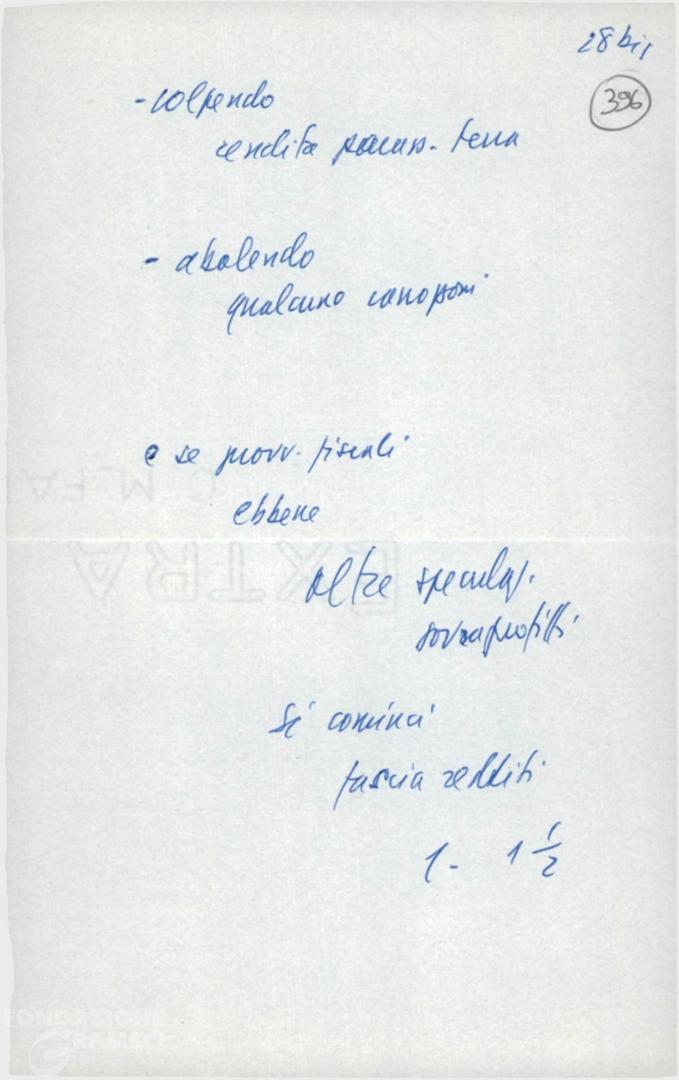 28 bis
396
- colpendo
rendita parass. terra
- abolendo
qualcuno
e se provv. fiscali
ebbene
oltre speculaz.
sovraprofitti
Si cominci
fascia redditi
1 - 1 1/2
C M FA
EXTRA
FONDAZIONE
GRAMSCI